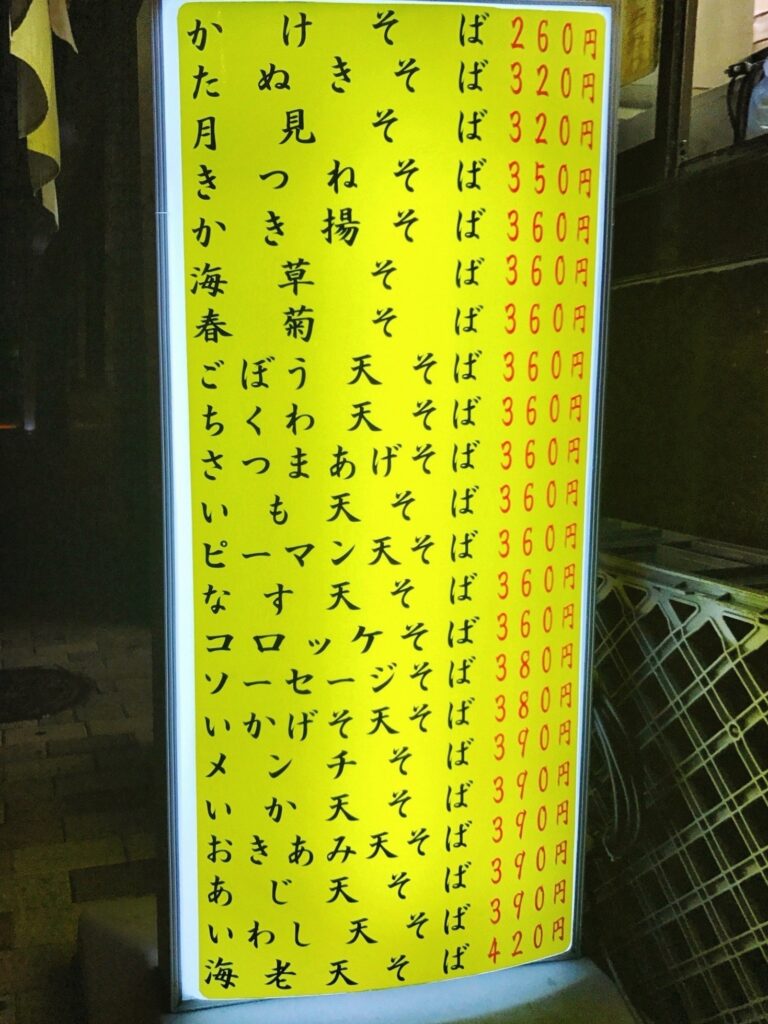 かけそば 260円
たぬきそば 320円
月見そば 320円
きつねそば 350円
かき揚そば 360円
海草そば 360円
春菊そば 360円
ごぼう天そば 360円
ちくわ天そば 360円
さつまあげそば 360円
いも天そば 360円
ピーマン天そば 360円
なす天そば 360円
コロッケそば 360円
ソーセージそば 380円
いかげそ天そば 380円
メンチそば 390円
いか天そば 390円
おきあみ天そば 390円
あじ天そば 390円
いわし天そば 390円
海老天そば 420円